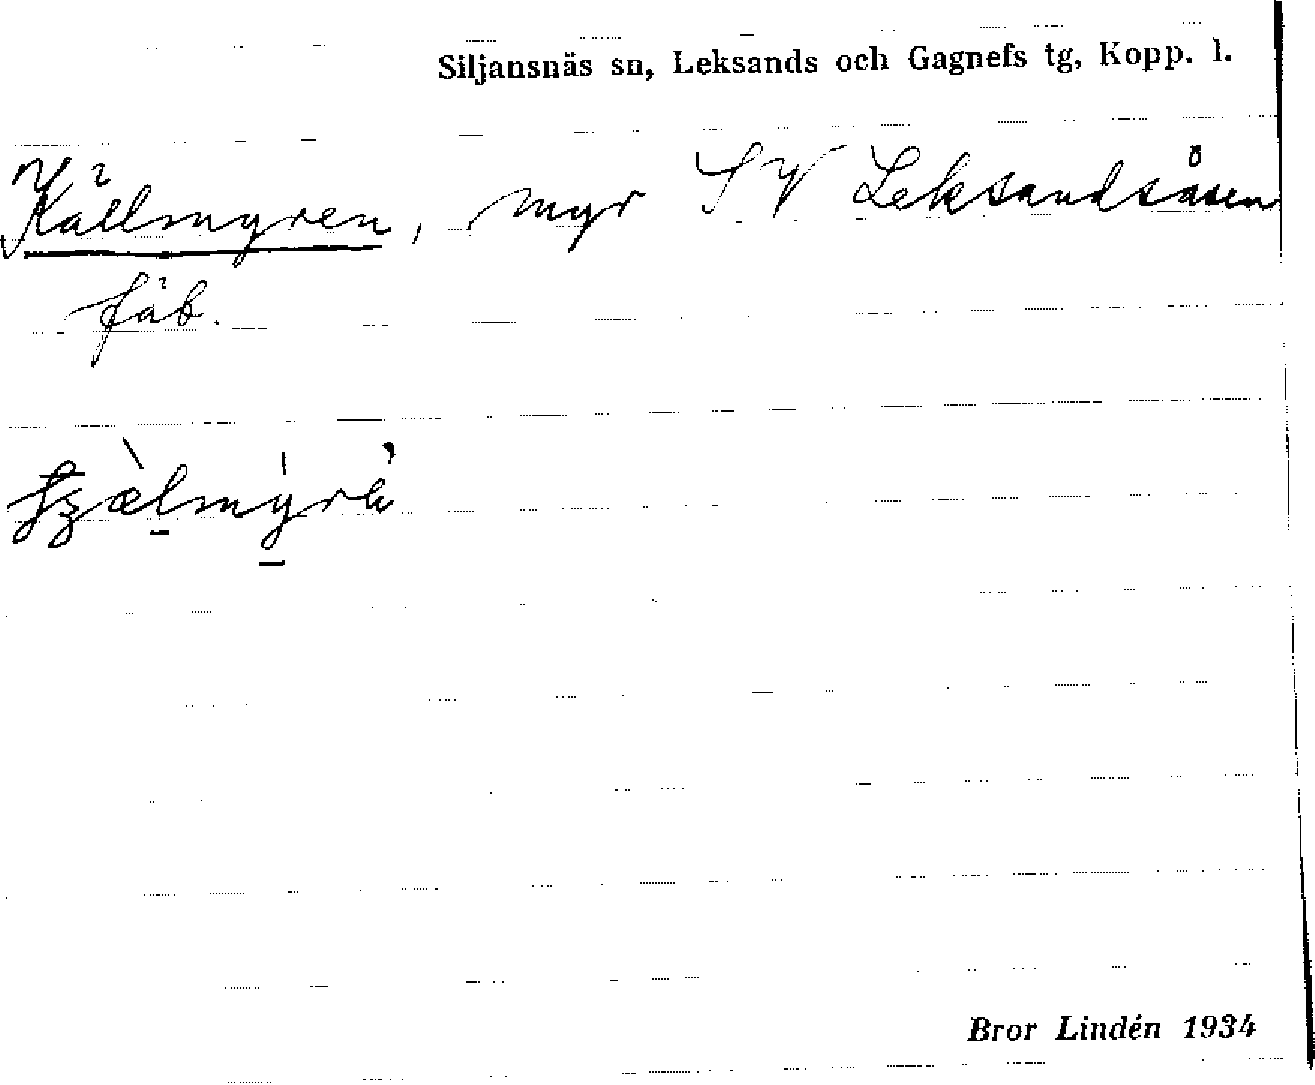 Siljansnäs sn, Leksands och Gagnefs tg, Kopp. l.
Källmyren, myr SV Leksandsåsen
fäb.
Bror Lindén 1934